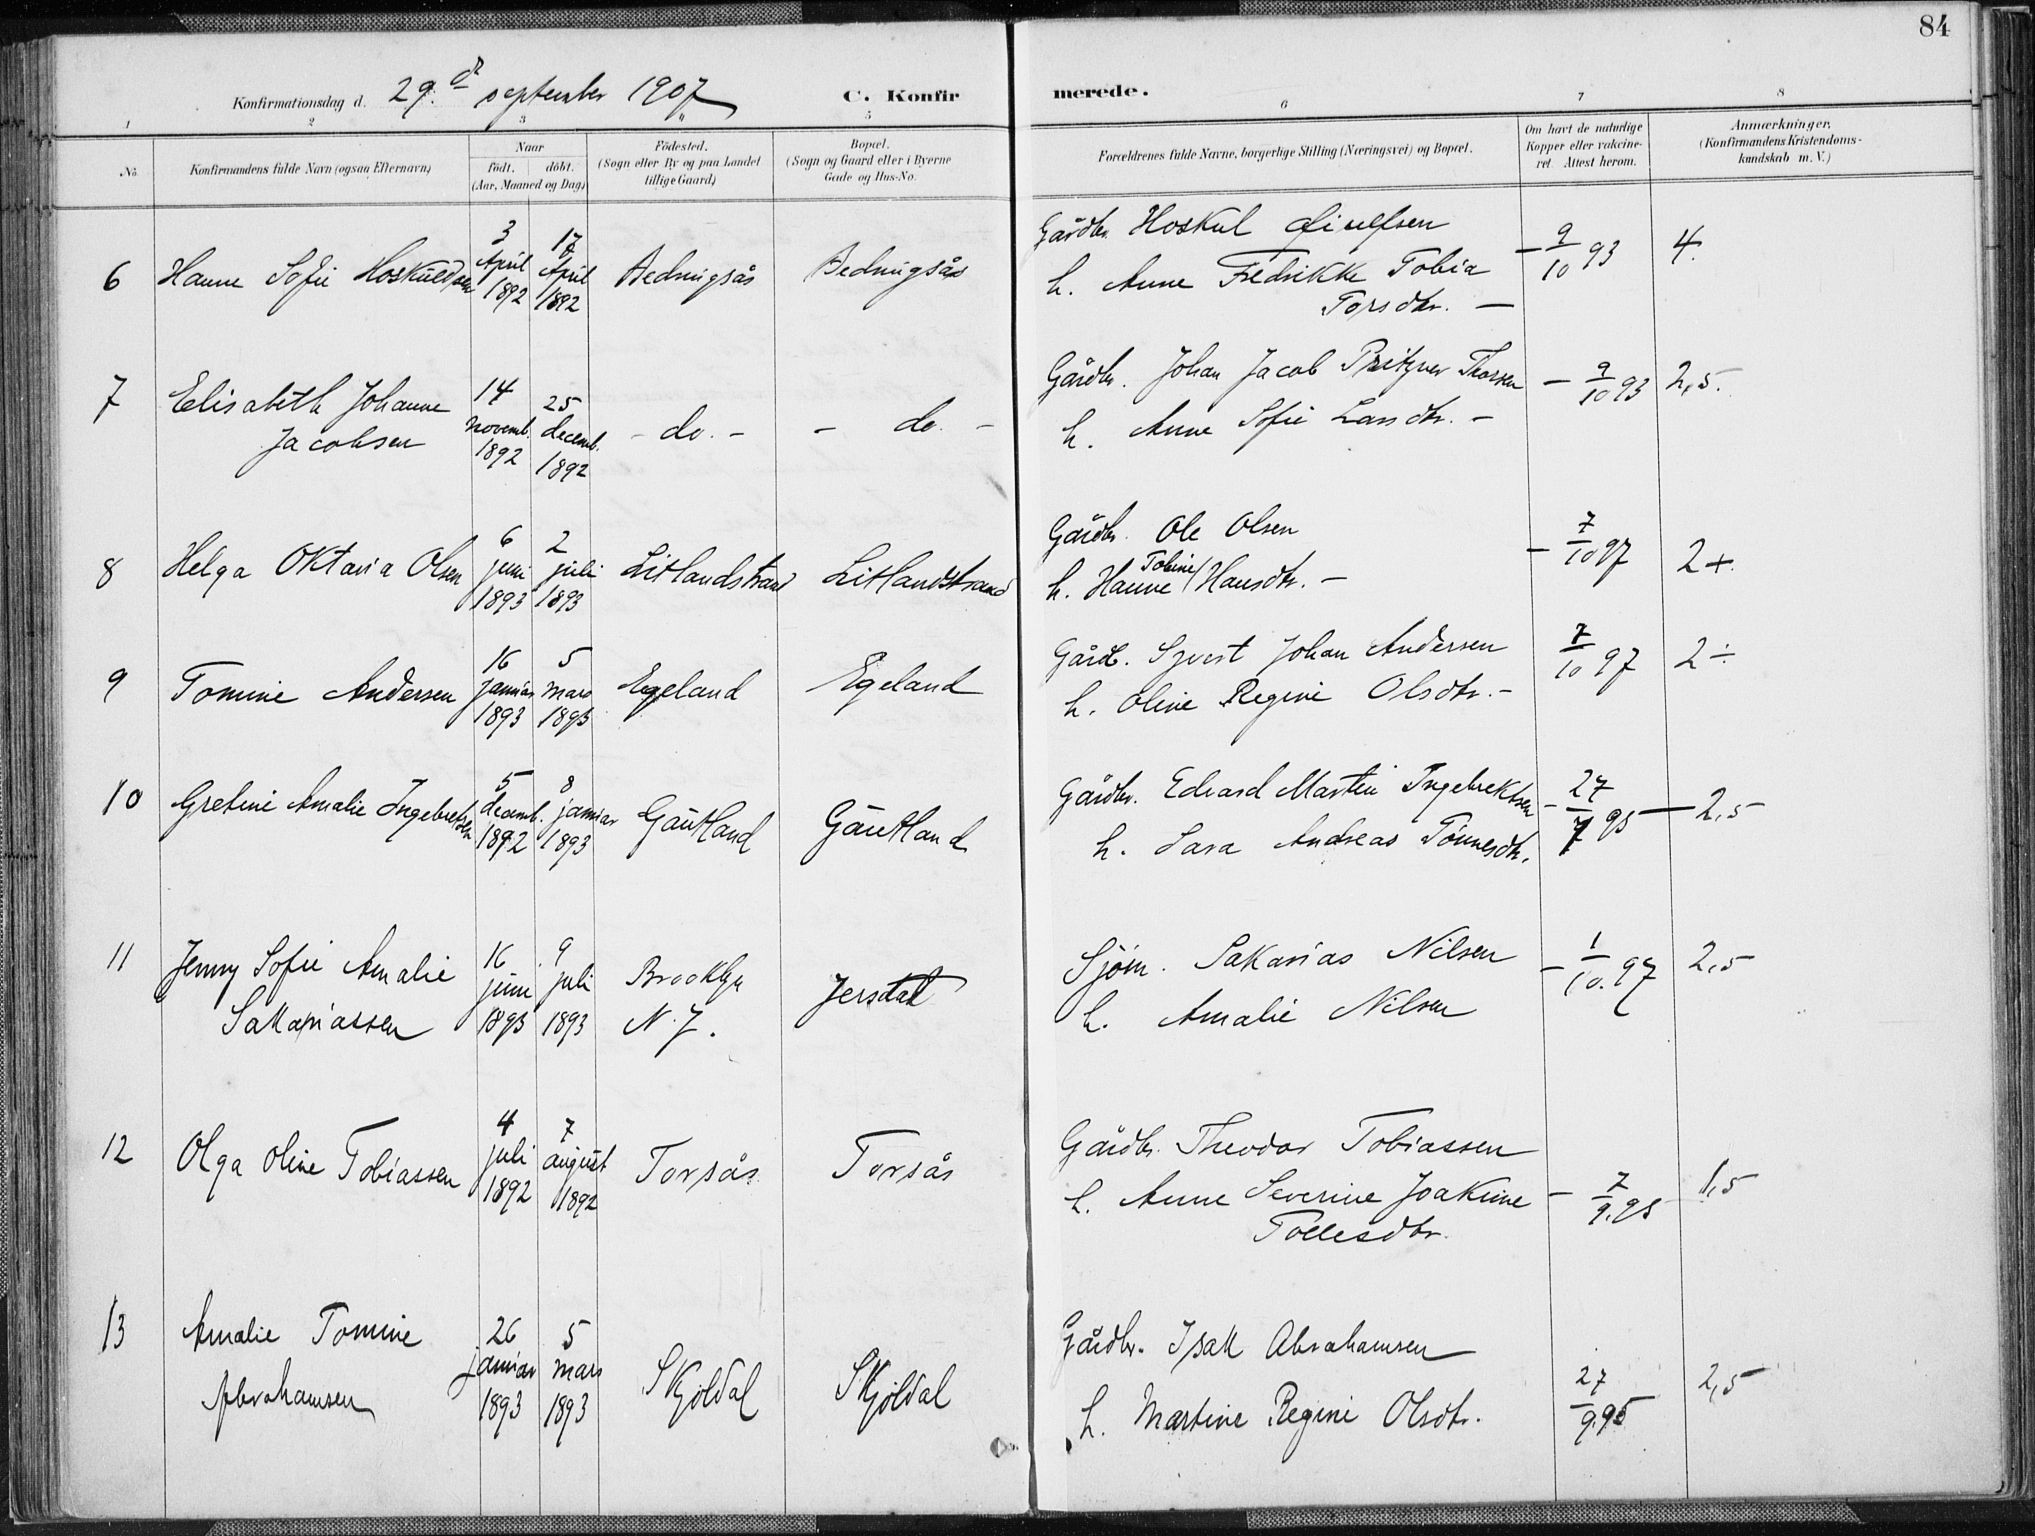 84
Konfirmationsdag d. 29.de september 1907
C. Konfirmerede.
1 2 3 4 5 6 7 8
No. Konfirmandens fulde Navn (ogsaa Efternavn) Naar födt. döbt. (Aar, Maaned og Dag) Födested. (Sogn eller By og paa Landet tillige Gaard) Bopæl. (Sogn og Gaard eller i Byerne Gade og Hus-No. Forældrenes fulde Navne, borgerlige Stilling (Næringsvei) og Bopæl. Om havt de naturlige Kopper eller vakcineret. Attest herom. Anmærkninger. (Konfirmandens Kristendomskundskab m. V.)
6 Hanne Sofie Hoskuldsen 3 April 1892 17 April 1892 Aedningsås Aedningsås Gårdbr. Hoskul
h. Anne Fredrikke Tobia Torsdtr. — – 9/10 93 4.
7 Elisabeth Johanne Jacobsen 14 novemb. 1892 25 decemb. 1892 – do. – – do. – Gårdbr. Johan Jacob Pritzner Thorsen
h. Anne Sofie Larsdtr. – – 9/10 93 2,5.
8 Helga Oktavia Olsen 6 juni 1893 2 juli 1893 Litlandstrand Litlandstrand Gårdbr. Ole Olsen
h. Hanne Tobine Hansdtr. – – 7/10 97 2+.
9 Tomine Andersen 16 januar 1893 5 mars 1893 Egeland Egeland Gårdb. Syvert Johan Andersen
h. Oline Regine Olsdtr. – 7/10 97 2÷.
10 Gretine Amalie Ingebretsen 5 decemb. 1892 8 januar 1893 Gautland Gautland Gårdbr. Edvard Martin Ingebrektsen
h. Sara Andreas Tönnesdtr. – 27/7 95 — 2,5
11 Jenny Sofie Amalie Sakariassen 16 juni 1893 9 juli 1893 Brooklyn N.J. Jersdal Sjöm. Sakarias Nilsen
h. Amalie Nilsen – 1/10. 97 2,5
12 Olga Oline Tobiassen 4 juli 1892 7 august 1892 Torsås Torsås Gårdbr. Theodor Tobiassen
h. Anne Severine Joakime Tollesdtr. – 7/9.95 1,5
13 Amalie Tomine Abrahamsen 26 januar 1893 5 mars 1893 Skjöldal Skjöldal Gårdbr. Isak Abrahamsen
h. Martine Regine Olsdtr. 27/9.95 2,5